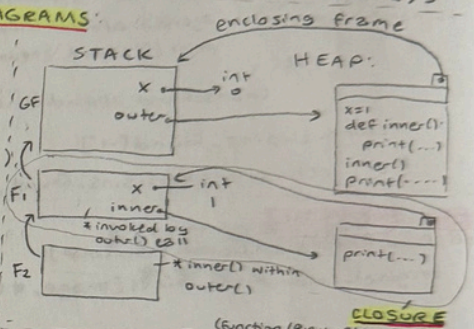 GRAMS:
enclosing frame
STACK
HEAP:
GF
x
int
0
outer
x=1
def inner():
print(...)
inner()
print(.....)
F1
x
int
1
inner
*invoked by
outer() call
print(...)
F2
*inner() within
outer()
CLOSURE